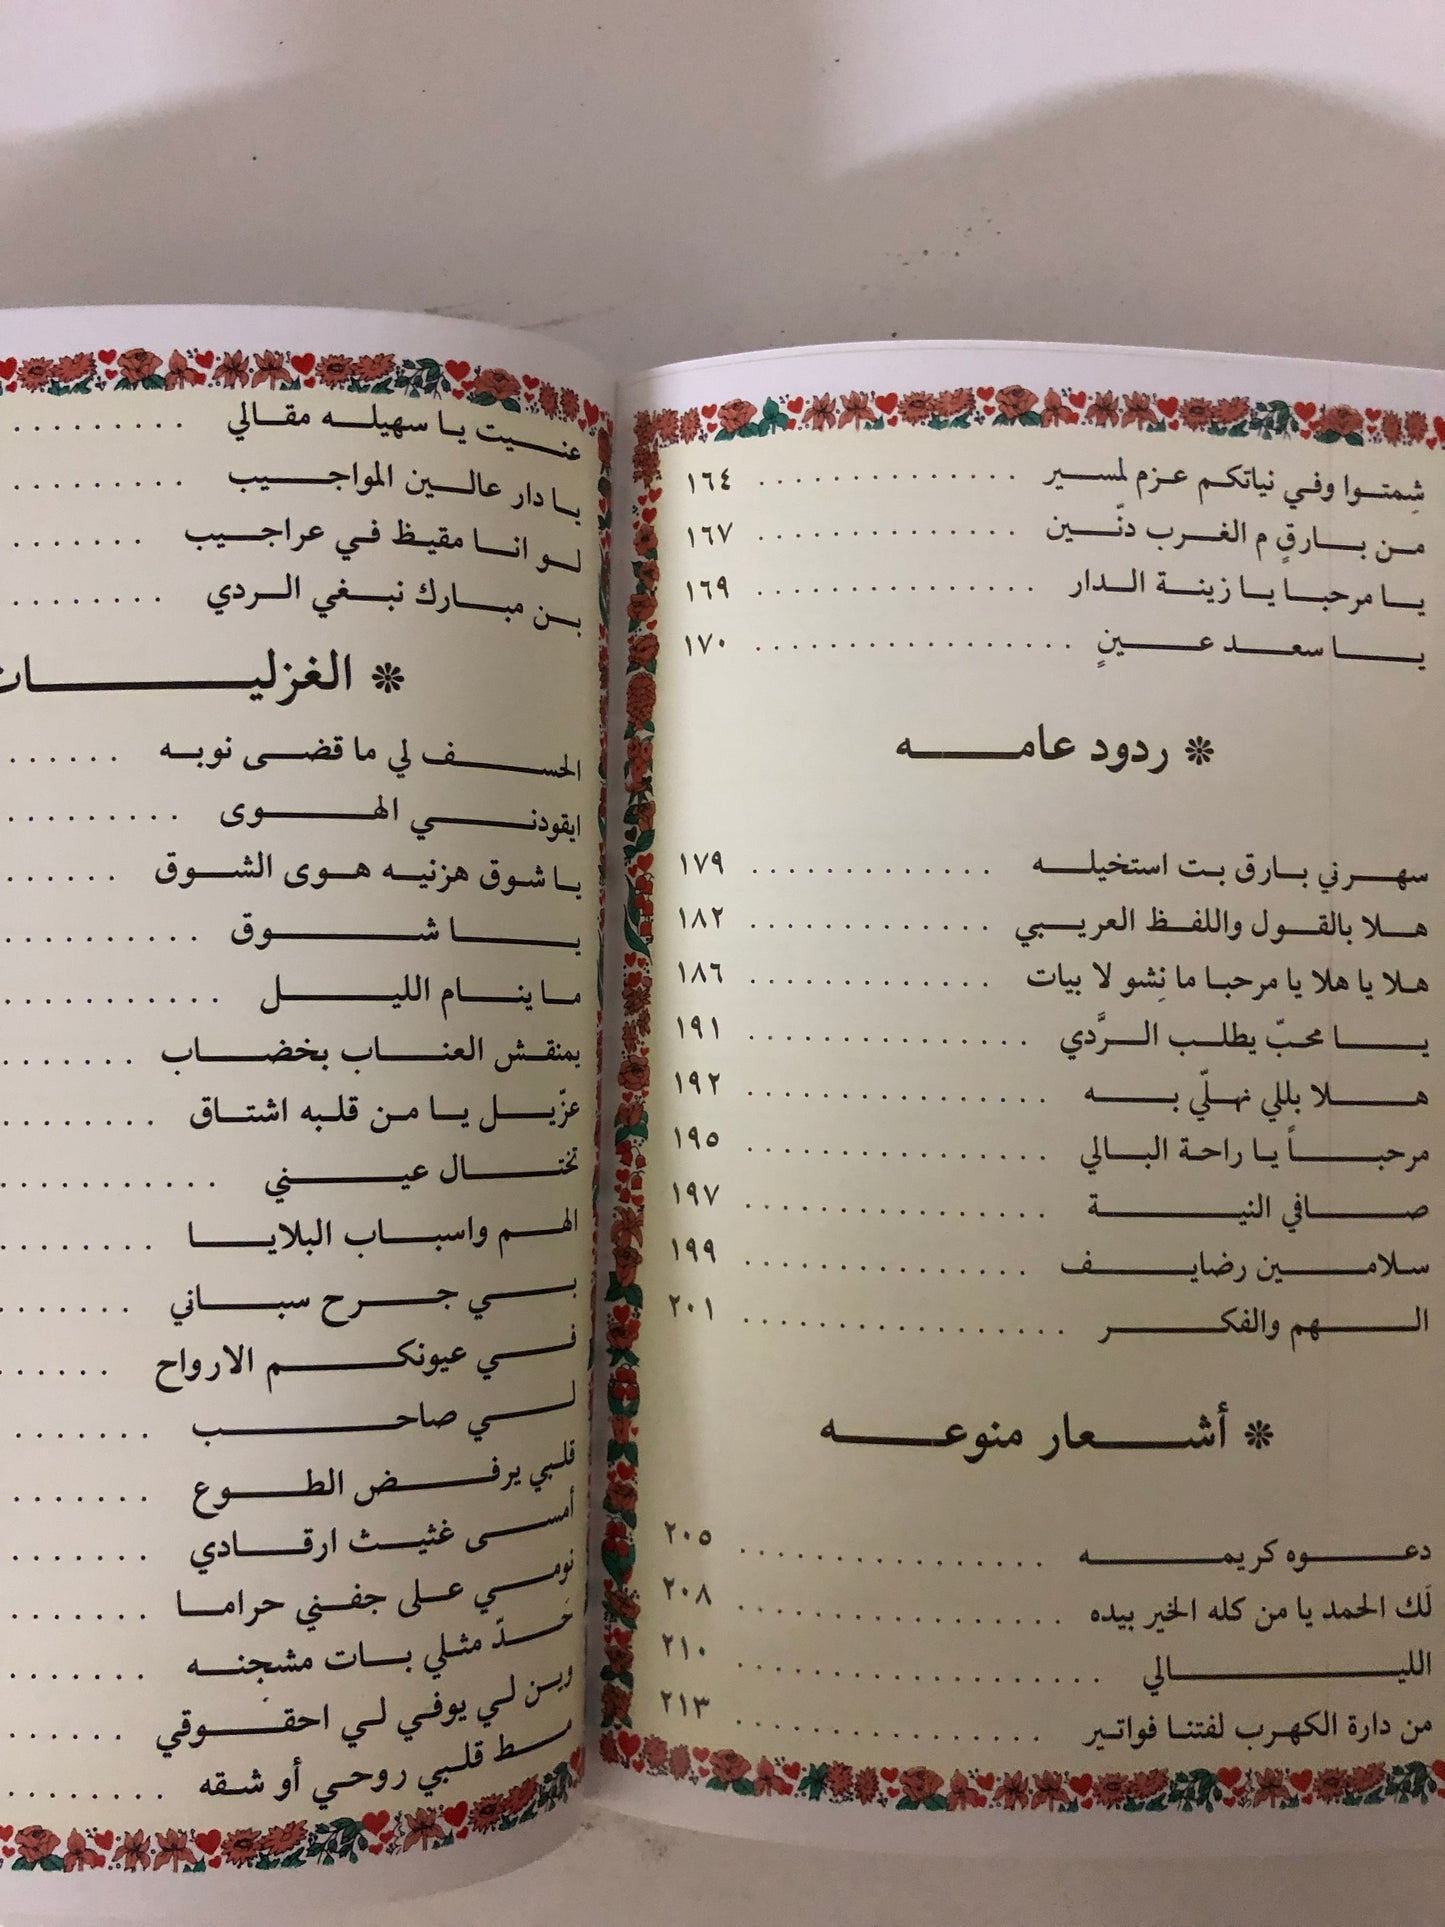 شِمتوا وفي نياتكم عزم لمسير . . . . . . . . . . . . . . ١٦٤
من بارقٍ م الغرب دنّين . . . . . . . . . . . . . . ١٦٧
يا مرحبا يا زينة الدار . . . . . . . . . . . . . . . ١٦٩
يا سعد عينٍ . . . . . . . . . . . . . . . . . ١٧٠
❊ ردود عامه
سهرني بارق بت استخيله . . . . . . . . . . . . . ١٧٩
هلا بالقول واللفظ العريبي . . . . . . . . . . . . . ١٨٢
هلا يا هلا يا مرحبا ما نِشو لا بيات . . . . . . . . . . . . . ١٨٦
يا محبّ يطلب الرَّدي . . . . . . . . . . . . . . . ١٩١
هلا بللي نهلّي به . . . . . . . . . . . . . . . . ١٩٢
مرحباً يا راحة البالي . . . . . . . . . . . . . . . . ١٩٥
صافي النية . . . . . . . . . . . . . . . . ١٩٧
سلامين رضايف . . . . . . . . . . . . . . . ١٩٩
الهم والفكر . . . . . . . . . . . . . . . . . ٢٠١
❊ أشعار منوعه
دعوه كريمه . . . . . . . . . . . . . . . . ٢٠٥
لَك الحمد يا من كله الخير بيده . . . . . . . . . . . . . . . . . ٢٠٨
الليالي . . . . . . . . . . . . . . . . . . . ٢١٠
من دارة الكهرب لفتنا فواتير . . . . . . . . . . . . . . . . ٢١٣
عنيت يا سهيله مقالي . . . . . . . . .
يا دار عالين المواجيب . . . . . . . . .
لو انا مقيظ في عراجيب . . . . . . .
بن مبارك نبغي الردي . . . . . . . .
❊ الغزليات
الحسف لي ما قضى نوبه . . . . . .
ايقودني الهوى . . . . . . . . .
يا شوق هزنيه هوى الشوق . . . . . .
يا شوق . . . . . . . . . .
ما ينام الليل . . . . . . . . . . .
يمنقش العناب بخضاب . . . . . . . .
عزّيل يا من قلبه اشتاق . . . . . . . .
تختال عيني . . . . . . . . . . .
الهم واسباب البلايا . . . . . . . .
بي جرح سباني . . . . . . .
في عيونكم الارواح . . . . . .
لي صاحب . . . . . . .
قلبي يرفض الطوع . . . . . . .
أمسى غثيث ارقادي . . . . . . .
نومي على جفني حراما . . . . . . .
حَدّ مثلي بات مشجنه . . . . . . .
وين لي يوفي لي احقوقي . . . . . .
قلبي روحي أو شقه . . . . . . . .